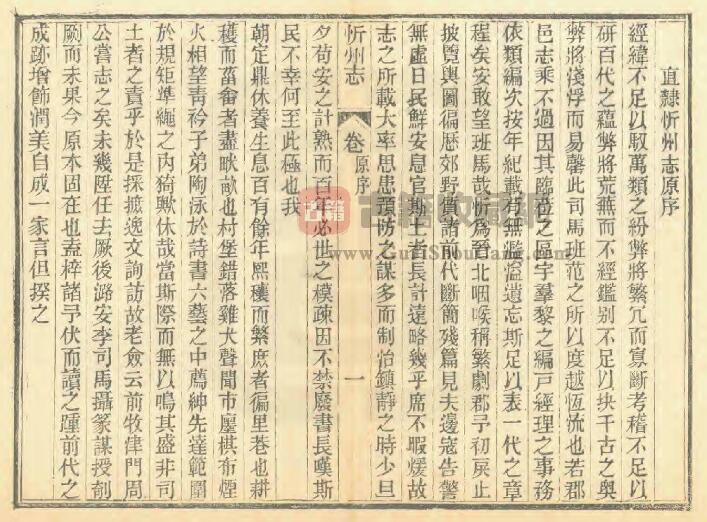 直隸忻州志原序
經緯不足以馭萬類之紛弊將繁冗而寡斷考稽不足以
研百代之蘊弊將荒蕪而不經鑑別不足以抉千古之奧
弊將淺浮而易罄此司馬班范之所以度越恆流也若郡
邑志乘不過因其疇昔之區宇羣黎之編戸經理之事務
依類編次按年紀載有無鑑溢遺忘斯足以表一代之章
程矣安敢望班馬哉忻爲晉北咽喉稱繁劇郡予初戾止
披覽輿圖徧歷郊野質諸前代斷簡殘篇見夫邊寇告警
無虛日民鮮安息官斯土者長計遠略幾乎席不暇煖故
志之所載大率思患預防之謀多而制怡鎮靜之時少旦
忻州志
卷
原序
一
夕苟安之計熟而百年必世之模疎因不禁廢書長嘆斯
民不幸何至此極也我
朝定鼎休養生息百有餘年熙穰而繁庶者徧里巷也耕
穫而菑畬者盡畎畝也村堡錯落雞犬聲聞市廛棋布煙
火相望靑衿子弟陶泳於詩書六藝之中薦紳先達範圍
於規矩準繩之內猗歟休哉當斯際而無以鳴其盛非司
土者之責乎於是採摭逸文詢訪故老僉云前牧津門周
公嘗志之矣未幾陞任去厥後潞安李司馬攝篆謀授剞
劂而未果今原本固在也盍梓諸予伏而讀之踵前代之
成跡增飾潤美自成一家言但揆之
古籍
古籍收藏網
www.GujiShouCang.com